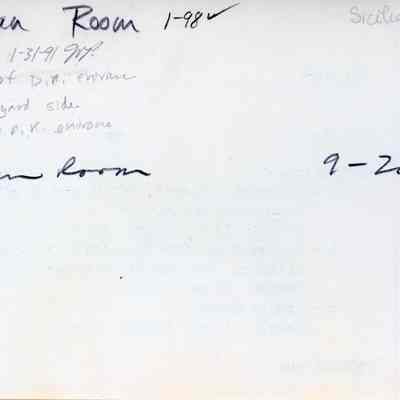 an Room 1-98✓ Sicilia
1-31-91
of D.R. entrance
yard side
D.R. entrance
n Room 9-20